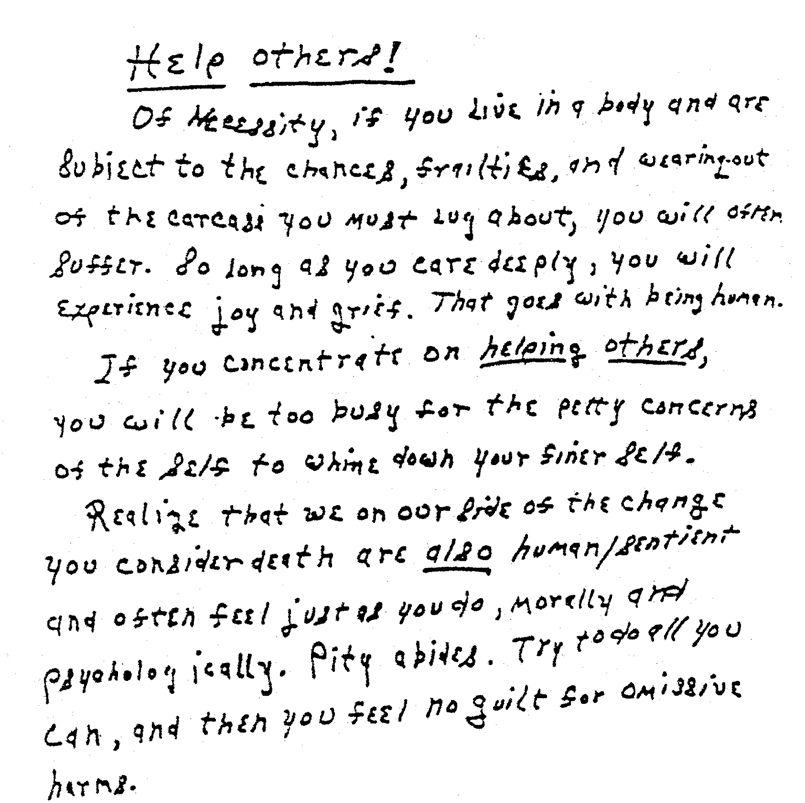 Help others!
Of Necessity, if you live in a body and are
subject to the chances, frailties, and wearing-out
of the carcass you must lug about, you will often
suffer. So long as you care deeply, you will
experience joy and grief. That goes with being human.
If you concentrate on helping others,
you will be too busy for the petty concerns
of the self to whine down your finer self.
Realize that we on our side of the change
you consider death are also human/sentient
and often feel just as you do, morally and
psychologically. Pity abides. Try to do all you
can, and then you feel no guilt for omissive
harms.